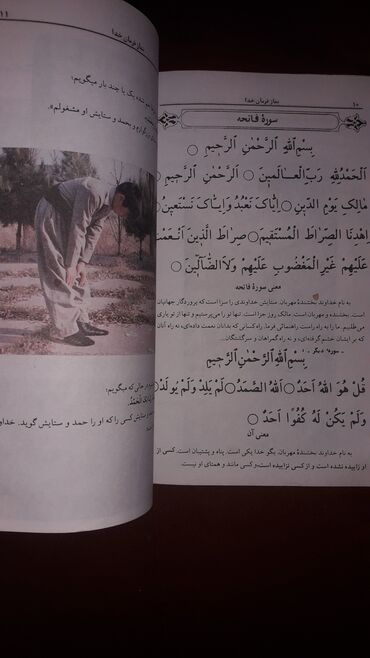 ۱۰
نماز فرمان خدا
سورهٔ فاتحه
بِسْمِ اللهِ الرَّحْمٰنِ الرَّحِيمِ
اَلْحَمْدُ لِلّٰهِ رَبِّ الْعٰالَمِينَ اَلرَّحْمٰنِ الرَّحِيمِ
مَالِكِ يَوْمِ الدِّينِ اِيّٰاكَ نَعْبُدُ وَاِيّٰاكَ نَسْتَعِينُ
اِهْدِنَا الصِّرٰاطَ الْمُسْتَقِيمَ صِرٰاطَ الَّذِينَ اَنْعَمْتَ
عَلَيْهِمْ غَيْرِ الْمَغْضُوبِ عَلَيْهِمْ وَلَا الضّٰآلِّينَ
معنی سورهٔ فاتحه
به نام خداوند بخشندهٔ مهربان. ستایش خداوندی را سزا است که پروردگار جهانیان
است. بخشنده و مهربان است. مالک روز جزا است. تنها تو را می‌پرستیم و تنها از تو یاری
می‌طلبیم. ما را به راه راست راهنمائی فرما. راه کسانی که بدانان نعمت داده‌ای، نه راه آنان
که بر ایشان خشم گرفته‌ای، و نه راه گمراهان و سرگشتگان...
- سورهٔ دیگر -
بِسْمِ اللهِ الرَّحْمٰنِ الرَّحِيمِ
قُلْ هُوَ اللهُ اَحَدٌ اَللهُ الصَّمَدُ لَمْ يَلِدْ وَلَمْ يُولَدْ
وَلَمْ يَكُنْ لَهُ كُفُوًا اَحَدٌ
معنی آن
به نام خداوند بخشندهٔ مهربان. بگو خدا یکی است. پناه و پشتیبان است. کسی از
او زاییده نشده است و از کسی نزاییده است، و کسی مانند و همتای او نیست.
۱۱
نماز فرمان خدا
شده یک یا چند بار میگوییم:
و بحمد و ستایش او مشغولم».
حالی که میگوییم:
الْحَمْدُ.
ستایش کسی را که او را حمد و ستایش گوید. خداو